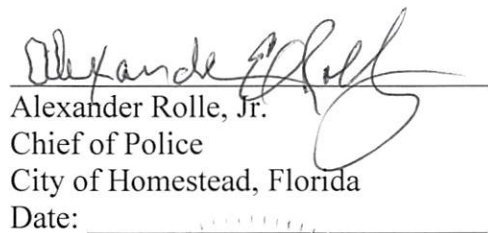 Alexander E Rolle
Alexander Rolle, Jr.
Chief of Police
City of Homestead, Florida
Date: